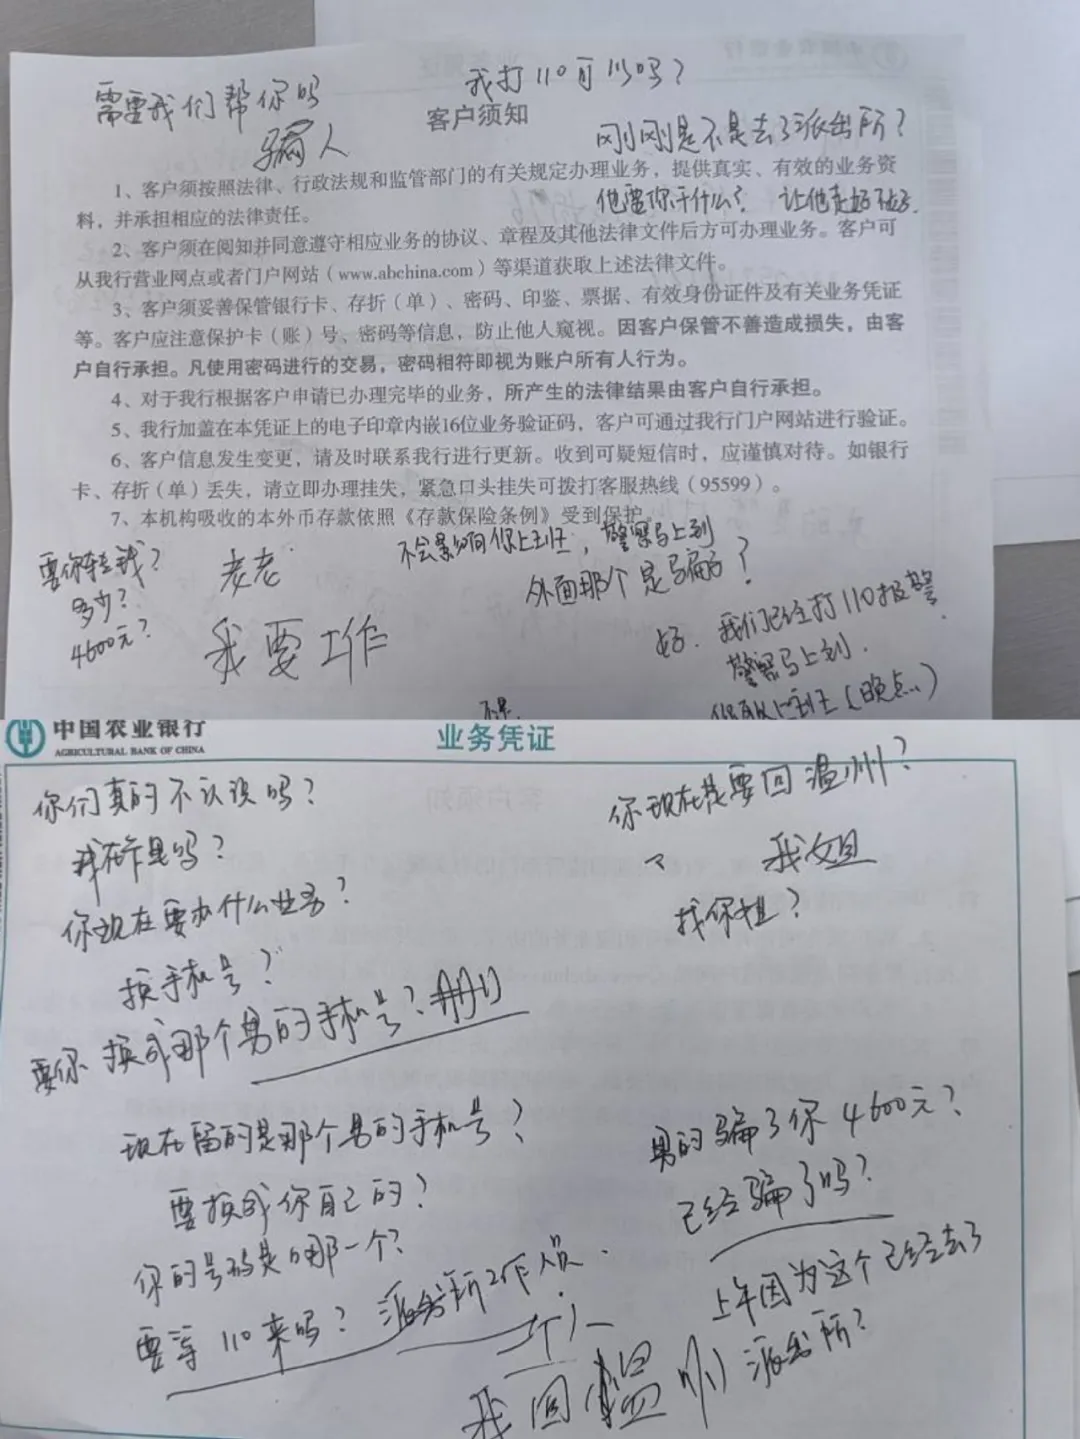 需要我们帮你吗
我打110可以吗？
骗人
客户须知
刚刚是不是去了派出所？
他要你干什么？ 让他走好不好.
1、客户须按照法律、行政法规和监管部门的有关规定办理业务，提供真实、有效的业务资
料，并承担相应的法律责任。
2、客户须在阅知并同意遵守相应业务的协议、章程及其他法律文件后方可办理业务。客户可
从我行营业网点或者门户网站（www.abchina.com）等渠道获取上述法律文件。
3、客户须妥善保管银行卡、存折（单）、密码、印鉴、票据、有效身份证件及有关业务凭证
等。客户应注意保护卡（账）号、密码等信息，防止他人窥视。因客户保管不善造成损失，由客
户自行承担。凡使用密码进行的交易，密码相符即视为账户所有人行为。
4、对于我行根据客户申请已办理完毕的业务，所产生的法律结果由客户自行承担。
5、我行加盖在本凭证上的电子印章内嵌16位业务验证码，客户可通过我行门户网站进行验证。
6、客户信息发生变更，请及时联系我行进行更新。收到可疑短信时，应谨慎对待。如银行
卡、存折（单）丢失，请立即办理挂失，紧急口头挂失可拨打客服热线（95599）。
7、本机构吸收的本外币存款依照《存款保险条例》受到保护。
要你转钱？
多少？
4600元？
老老
我要工作
不会影响你上班，警察马上到
外面那个是骗子？
好. 我们已经打110报警.
警察马上到.
上班（晚点..）
中国农业银行
AGRICULTURAL BANK OF CHINA
业务凭证
你们真的不认识吗？
你现在要办什么业务？
换手机号？
要你 换成那个男的手机号？
现在留的是那个男的手机号？
要换成你自己的？
你的号码是哪一个？
要等110来吗？ 派出所工作人员.
你现在是要回温州？
我姐
找你姐？
男的骗了你4600元？
已经骗了吗？
上午因为这个已经去了
派出所？
我回温州